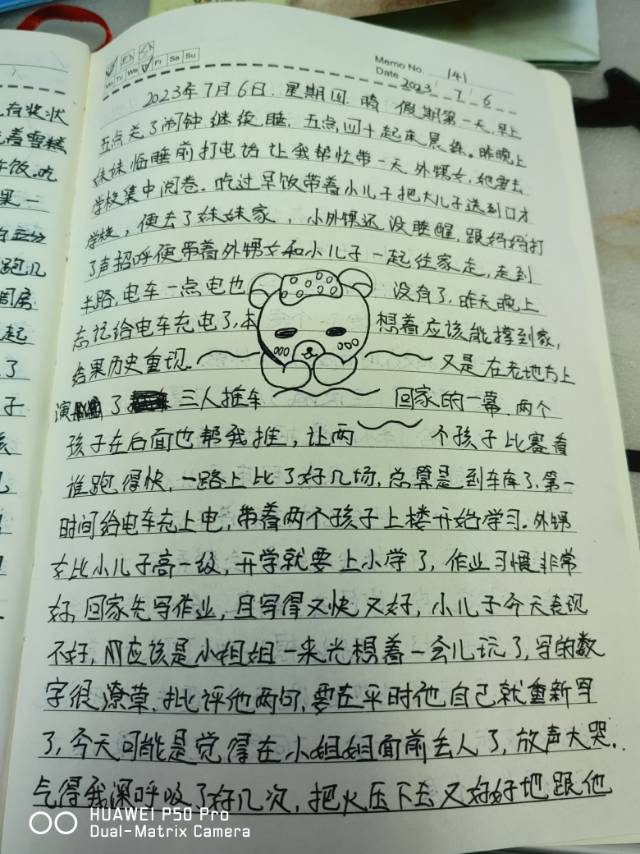 有奖状
着雪糕
午饭.吃
果一
跑几
周房
起
了
子
Mo Tu We Th Fr Sa Su
Memo No. 141
Date 2023.7.6
2023年7月6日.星期四.晴 假期第一天,早上
五点关了闹钟继续睡.五点四十起床晨练.昨晚上
妹妹临睡前打电话让我帮忙带一天外甥女,她要去
学校集中阅卷.吃过早饭带着小儿子把大儿子送到口才
学校,便去了妹妹家,小外甥还没睡醒,跟妈妈打
了声招呼便带着外甥女和小儿子一起往家走,走到
半路.电车一点电也没有了,昨天晚上
忘记给电车充电了,本想着应该能撑到家,
结果历史重现.又是在老地方上
演了三人推车回家的一幕,两个
孩子在后面也帮我推,让两个孩子比赛看
谁跑得快,一路上比了好几场,总算是到车库了.第一
时间给电车充上电,带着两个孩子上楼开始学习.外甥
女比小儿子高一级,开学就要上小学了,作业习惯非常
好,回家先写作业,且写得又快又好,小儿子今天表现
不好,应该是小姐姐一来光想着一会儿玩了,写的数
字很潦草,批评他两句,要在平时他自己就重新写
了,今天可能是觉得在小姐姐面前丢人了,放声大哭.
气得我深呼吸了好几次,把火压下去又好好地跟他
HUAWEI P50 Pro
Dual-Matrix Camera